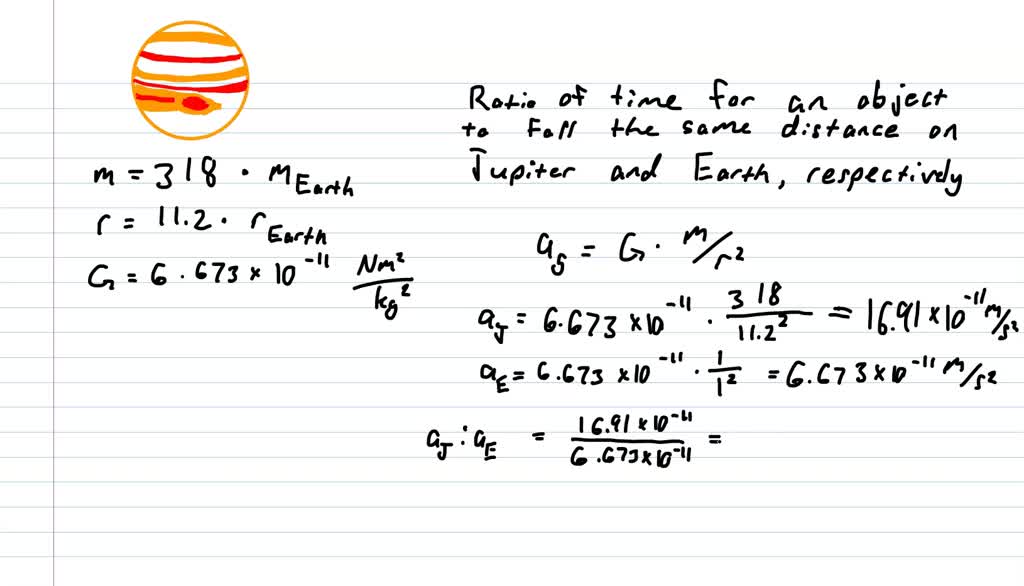 Ratio of time for an object
to fall the same distance on
Jupiter and Earth, respectively
m = 318 · m_Earth
r = 11.2 · r_Earth
G = 6.673 × 10^-11 Nm²/kg²
a_g = G · m/r²
a_J = 6.673 × 10^-11 · 318/11.2² = 16.91 × 10^-11 m/s²
a_E = 6.673 × 10^-11 · 1/1² = 6.673 × 10^-11 m/s²
a_J : a_E = 16.91 × 10^-11/6.673 × 10^-11 =